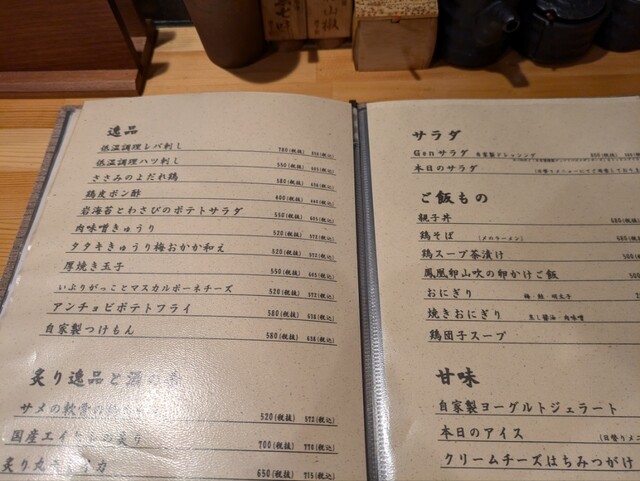 山椒
逸品
低温調理レバ刺し 780(税抜)
低温調理ハツ刺し 550(税抜) 605(税込)
ささみのよだれ鶏 580(税抜) 638(税込)
鶏皮ポン酢 400(税抜)
岩海苔とわさびのポテトサラダ 550(税抜) 605(税込)
肉味噌きゅうり 520(税抜) 572(税込)
タタキきゅうり梅おかか和え 520(税抜) 572(税込)
厚焼き玉子 550(税抜) 605(税込)
いぶりがっことマスカルポーネチーズ 520(税抜) 572(税込)
アンチョビポテトフライ 580(税抜) 638(税込)
自家製つけもん 580(税抜) 638(税込)
炙り逸品と酒の
サメの軟骨の 520(税抜) 572(税込)
国産エイ 炙り 700(税抜) 770(税込)
炙り丸 イカ 650(税抜) 715(税込)
サラダ
Genサラダ 自家製ドレッシング
本日のサラダ
ご飯もの
親子丼
鶏そば (〆のラーメン)
鶏スープ茶漬け
鳳凰卵山吹の卵かけご飯
おにぎり 梅・鮭・明太子
焼きおにぎり 蒸し醤油・肉味噌
鶏団子スープ
甘味
自家製ヨーグルトジェラート
本日のアイス (日替りメニ
クリームチーズはちみつがけ